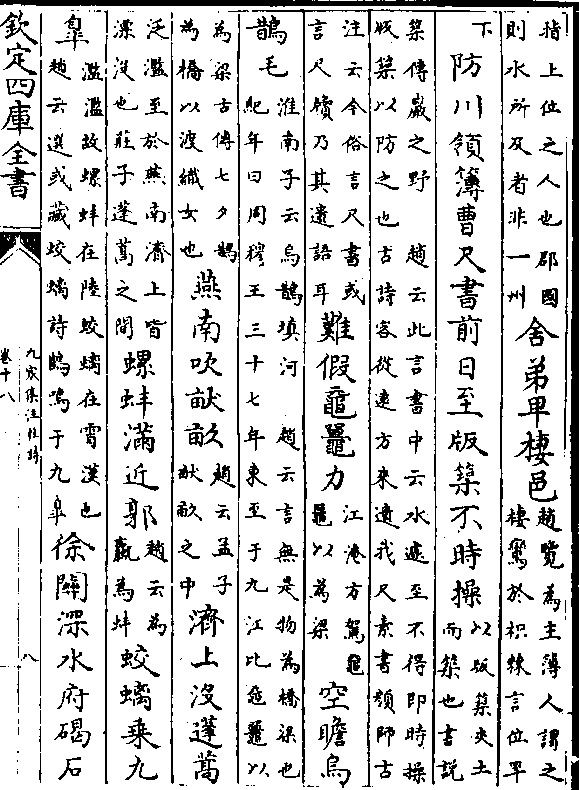 指上位之人也郡國
則水所及者非一州
舍弟卑棲邑
趙覽為主薄人謂之
棲鸞於枳棘言位卑
下
防川領簿曹尺書前日至版築不時操
以版築夾土
而築也書説
築傅巖之野 趙云此言書中云水遽至不得即時操
版築以防之也古詩客從遠方來遺我尺素書顏師古
注云今俗言尺書或
言尺牘乃其遺語耳
難假黿鼉力
江淹方駕黿
鼉以為梁
空瞻烏
鵲毛
淮南子云烏鵲填河 趙云言無是物為橋梁也
紀年曰周穆王三十七年東至于九江比黿鼉以
為梁古傳七夕鵲
為橋以渡織女也
燕南吹畎畝
趙云孟子
畎畝之中
濟上沒蓬蒿
泛濫至於燕南濟上皆
漂沒也莊子蓬蒿之間
螺蚌滿近郭
趙云為
蠃為蚌
蛟螭乘九
臯
濫濫故螺蚌在陸蛟螭在霄漢也
趙云選或藏蛟螭詩鶴鳴于九臯
徐關深水府碣石
欽定四庫全書
九家集注杜詩
卷十八
八